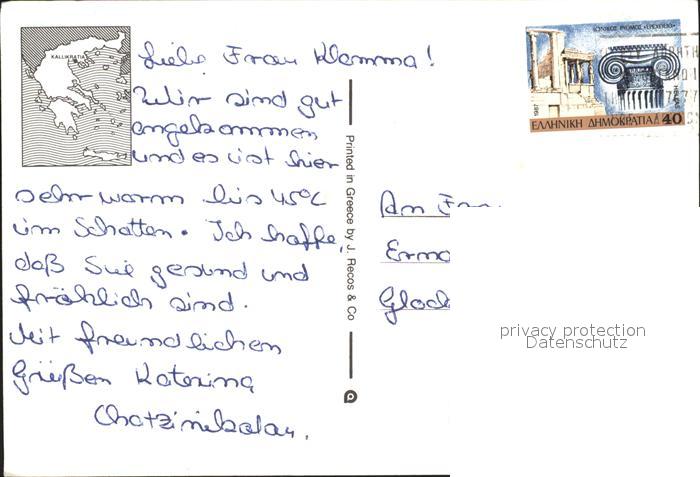 KALLIKRATIA
Liebe Frau Klamma!
Wir sind gut
angekommen
und es ist hier
sehr warm bis 45°C
im Schatten. Ich hoffe,
daß Sie gesund und
fröhlich sind.
Mit freundlichen
Grüßen Katerina
Chatzinikolau.
Printed in Greece by J. Recos & Co
ΙΩΝΙΚΟΣ ΡΥΘΜΟΣ «ΕΡΕΧΘΕΙΟ»
1987
ΕΛΛΗΝΙΚΗ ΔΗΜΟΚΡΑΤΙΑ 40
An Frau
Erma
Glock
privacy protection
Datenschutz